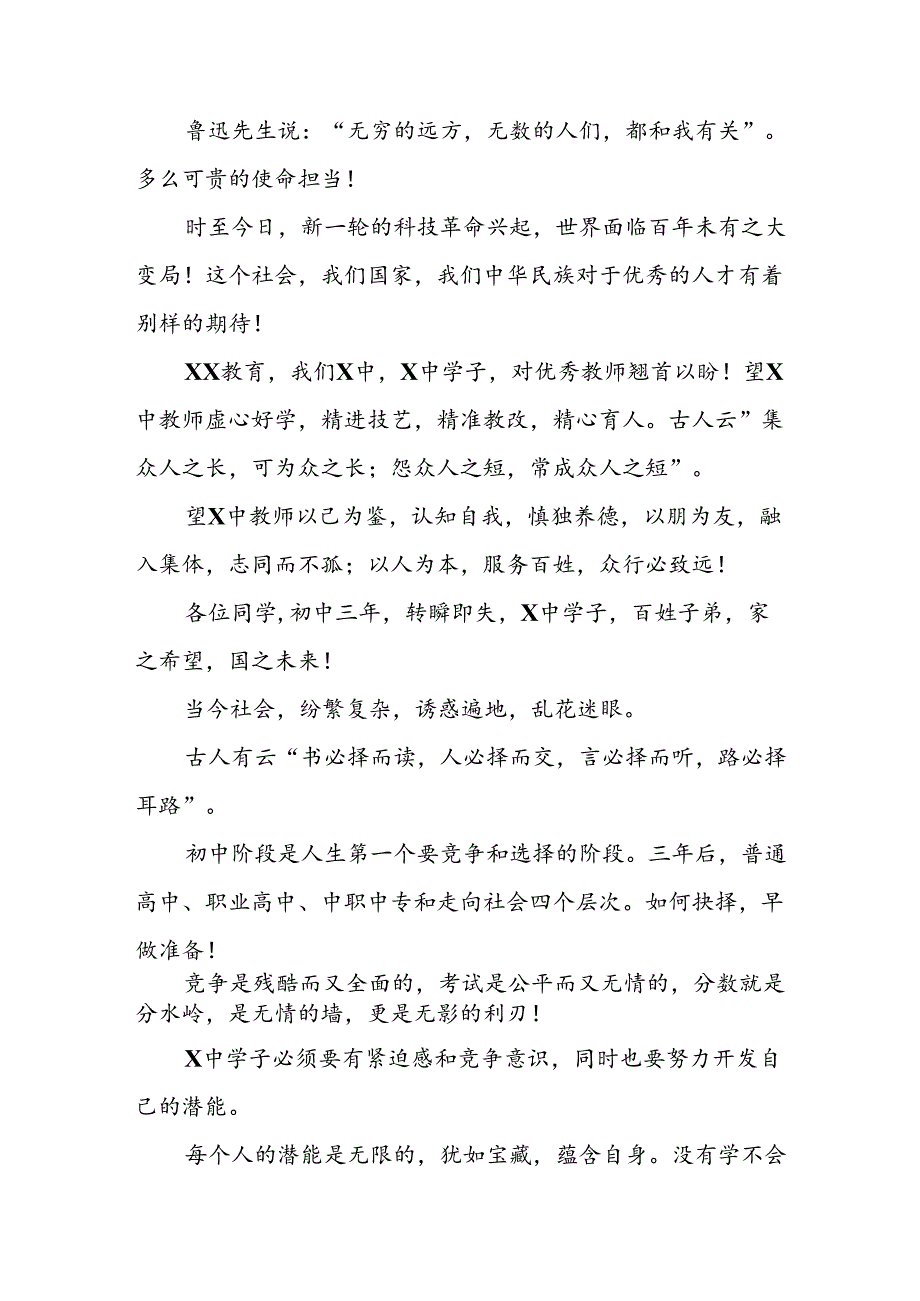 鲁迅先生说：“无穷的远方，无数的人们，都和我有关”。
多么可贵的使命担当！
时至今日，新一轮的科技革命兴起，世界面临百年未有之大
变局！这个社会，我们国家，我们中华民族对于优秀的人才有着
别样的期待！
XX教育，我们X中，X中学子，对优秀教师翘首以盼！望X
中教师虚心好学，精进技艺，精准教改，精心育人。古人云”集
众人之长，可为众之长；怨众人之短，常成众人之短”。
望X中教师以己为鉴，认知自我，慎独养德，以朋为友，融
入集体，志同而不孤；以人为本，服务百姓，众行必致远！
各位同学,初中三年，转瞬即失，X中学子，百姓子弟，家
之希望，国之未来！
当今社会，纷繁复杂，诱惑遍地，乱花迷眼。
古人有云“书必择而读，人必择而交，言必择而听，路必择
耳路”。
初中阶段是人生第一个要竞争和选择的阶段。三年后，普通
高中、职业高中、中职中专和走向社会四个层次。如何抉择，早
做准备！
竞争是残酷而又全面的，考试是公平而又无情的，分数就是
分水岭，是无情的墙，更是无影的利刃！
X中学子必须要有紧迫感和竞争意识，同时也要努力开发自
己的潜能。
每个人的潜能是无限的，犹如宝藏，蕴含自身。没有学不会